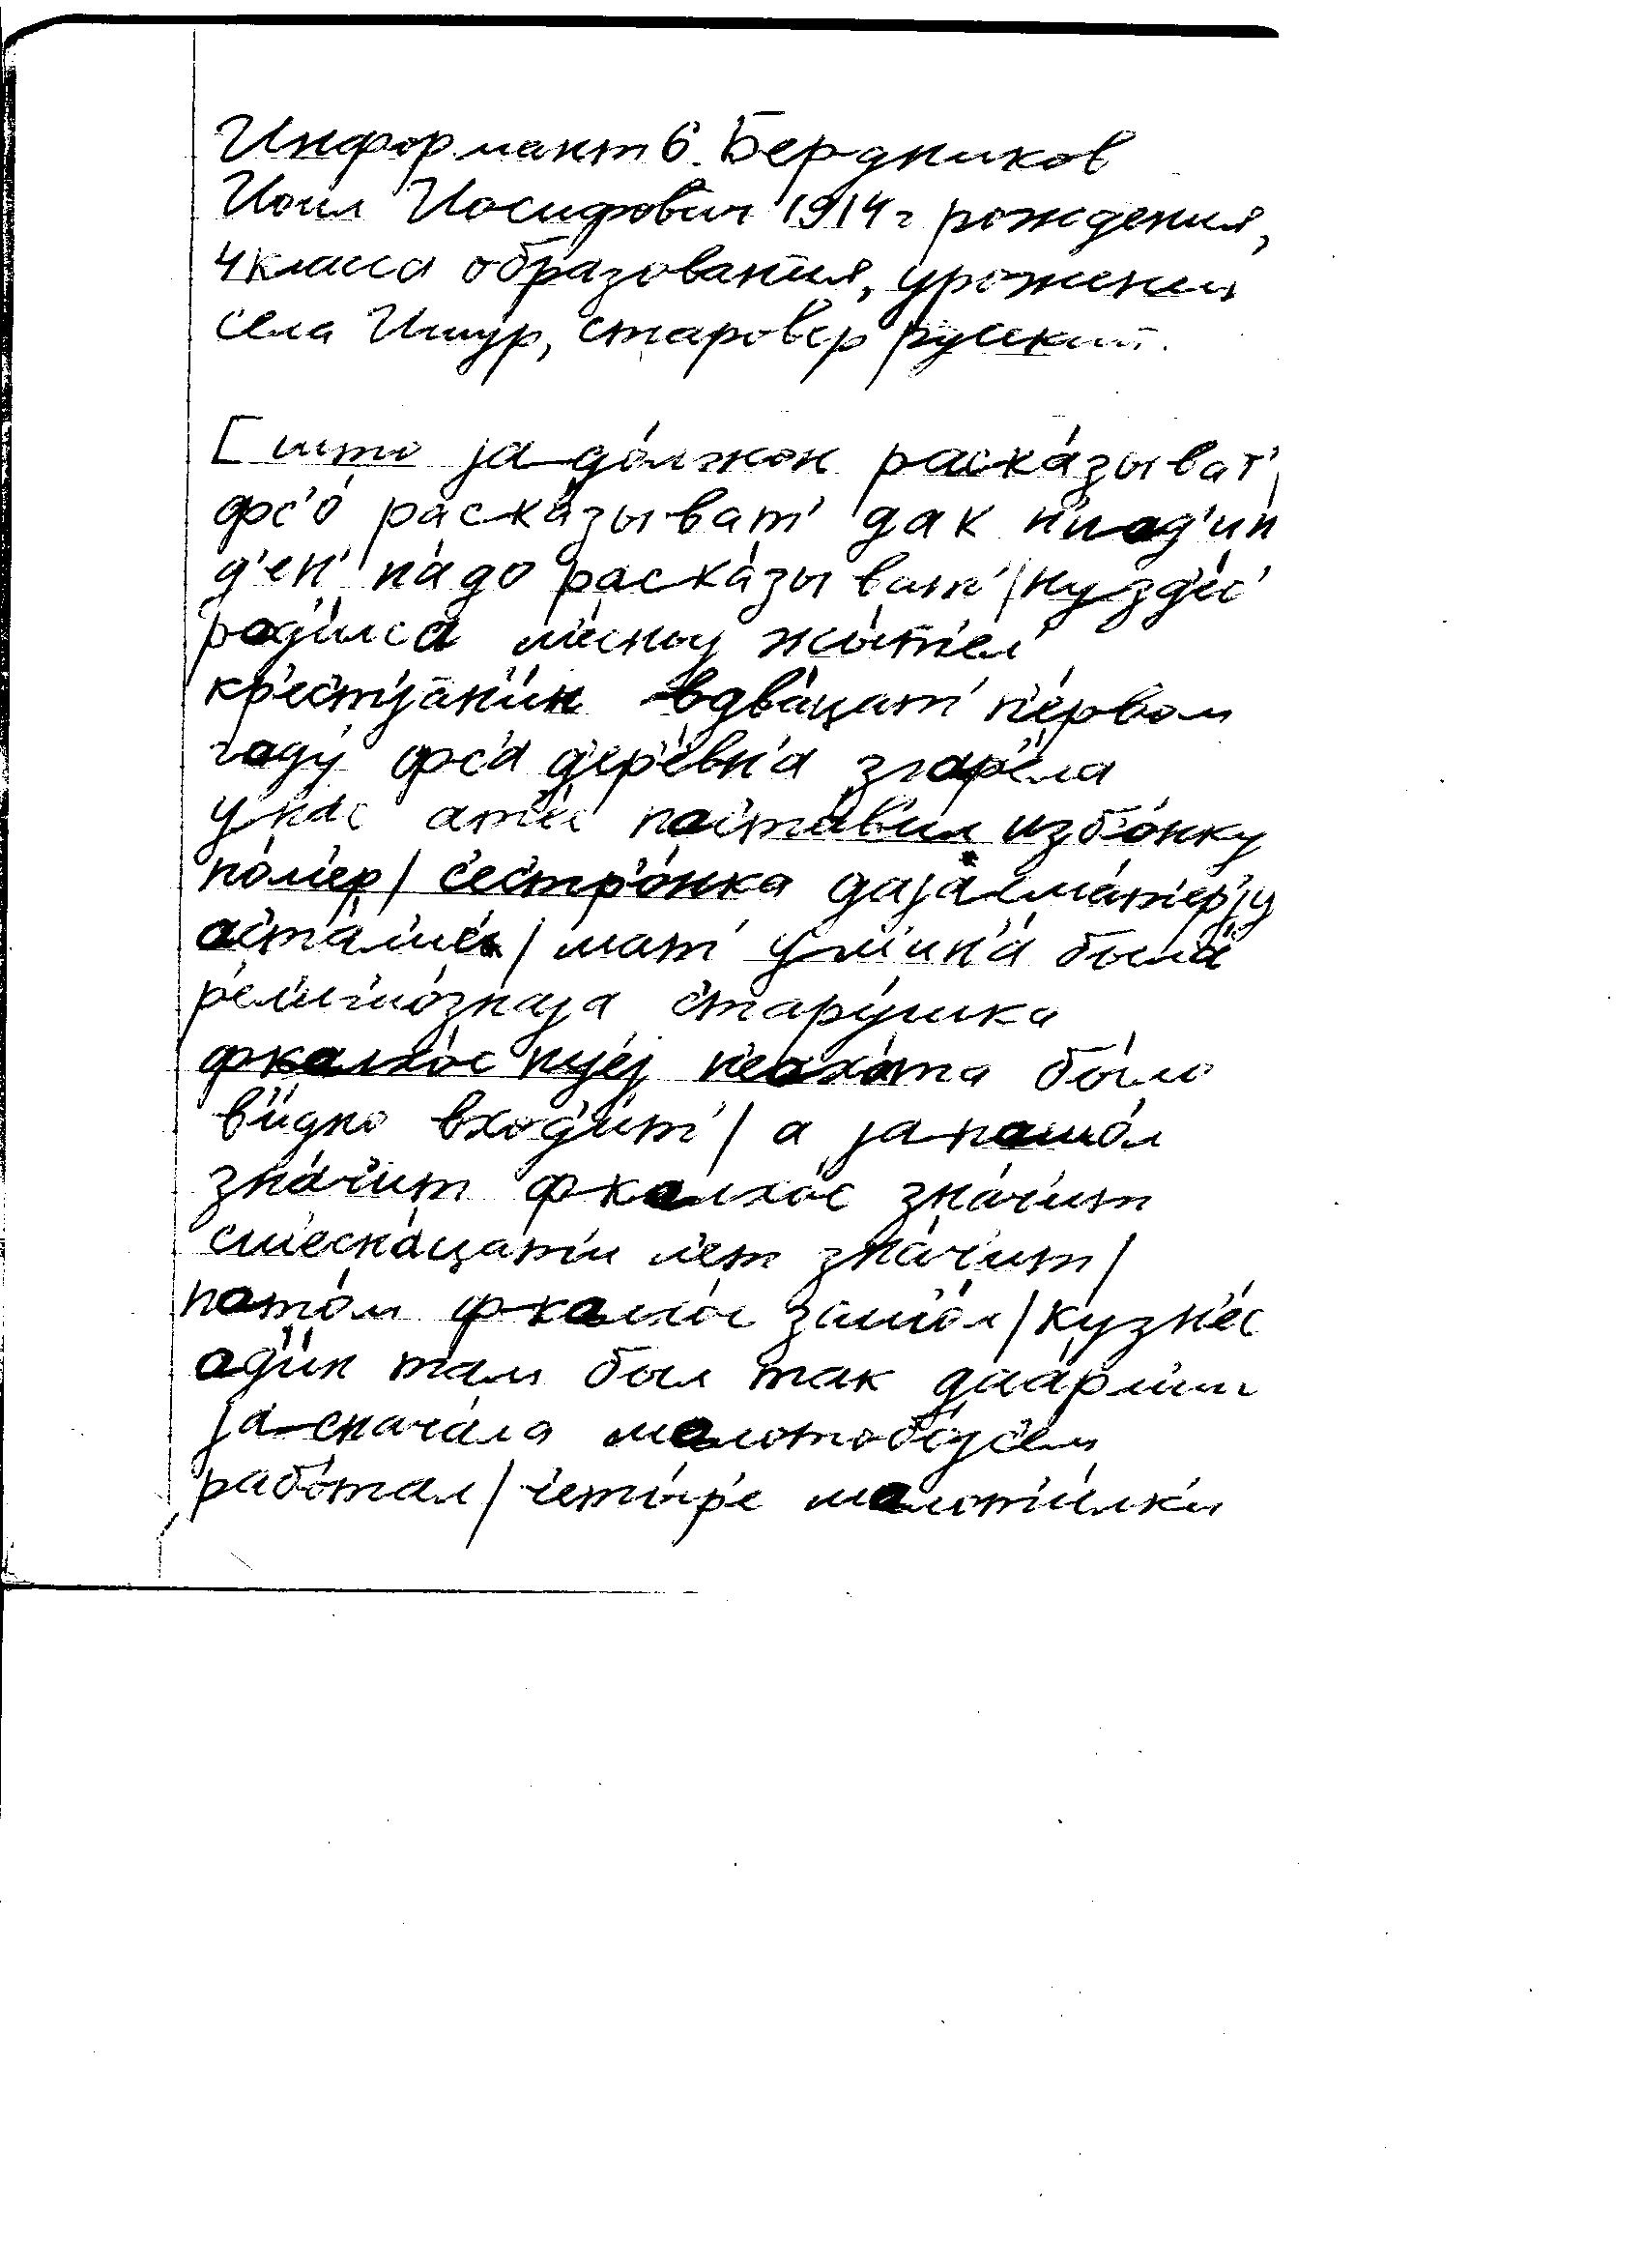 Информант 6. Бердников
Иоил Иосифович 1914 г рождения,
4 класса образования, уроженец
села Ишур, старовер русский.
[ што jа до́лжон раска́зыват'
фс'о́ раска́зыват' дак н'иод'ин
д'ен' на́до раска́зыват' / ну зд'ес'
род'и́лса м'е́сноj жы́т'ел'
кр'ест'jа́н'ин вдва́цат' п'е́рвом
году́ фс'а д'ер'е́вн'а згор'е́ла
у нас ат'е́с поста́в'ил избо́нку
по́м'ер / с'естр'о́нка да jа сма́т'ер'jу
аста́л'ис' / мат' у м'ин'а́ была́
р'ел'иг'ио́знаjа стару́шка
фкалхо́с н'уjеj н'еохо́та бы́ло
в'и́дно вход'и́т' / а jа пошо́л
зна́ч'ит фкалхо́с зна́ч'ит
сшесна́цат'и л'ет зна́ч'ит /
пото́м фкалхо́с зашо́л / кузн'е́с
од'и́н там был так даа́рм'ии
jа снача́ла молотобо́jсем
рабо́тал / четы́р'е молот'и́лк'и